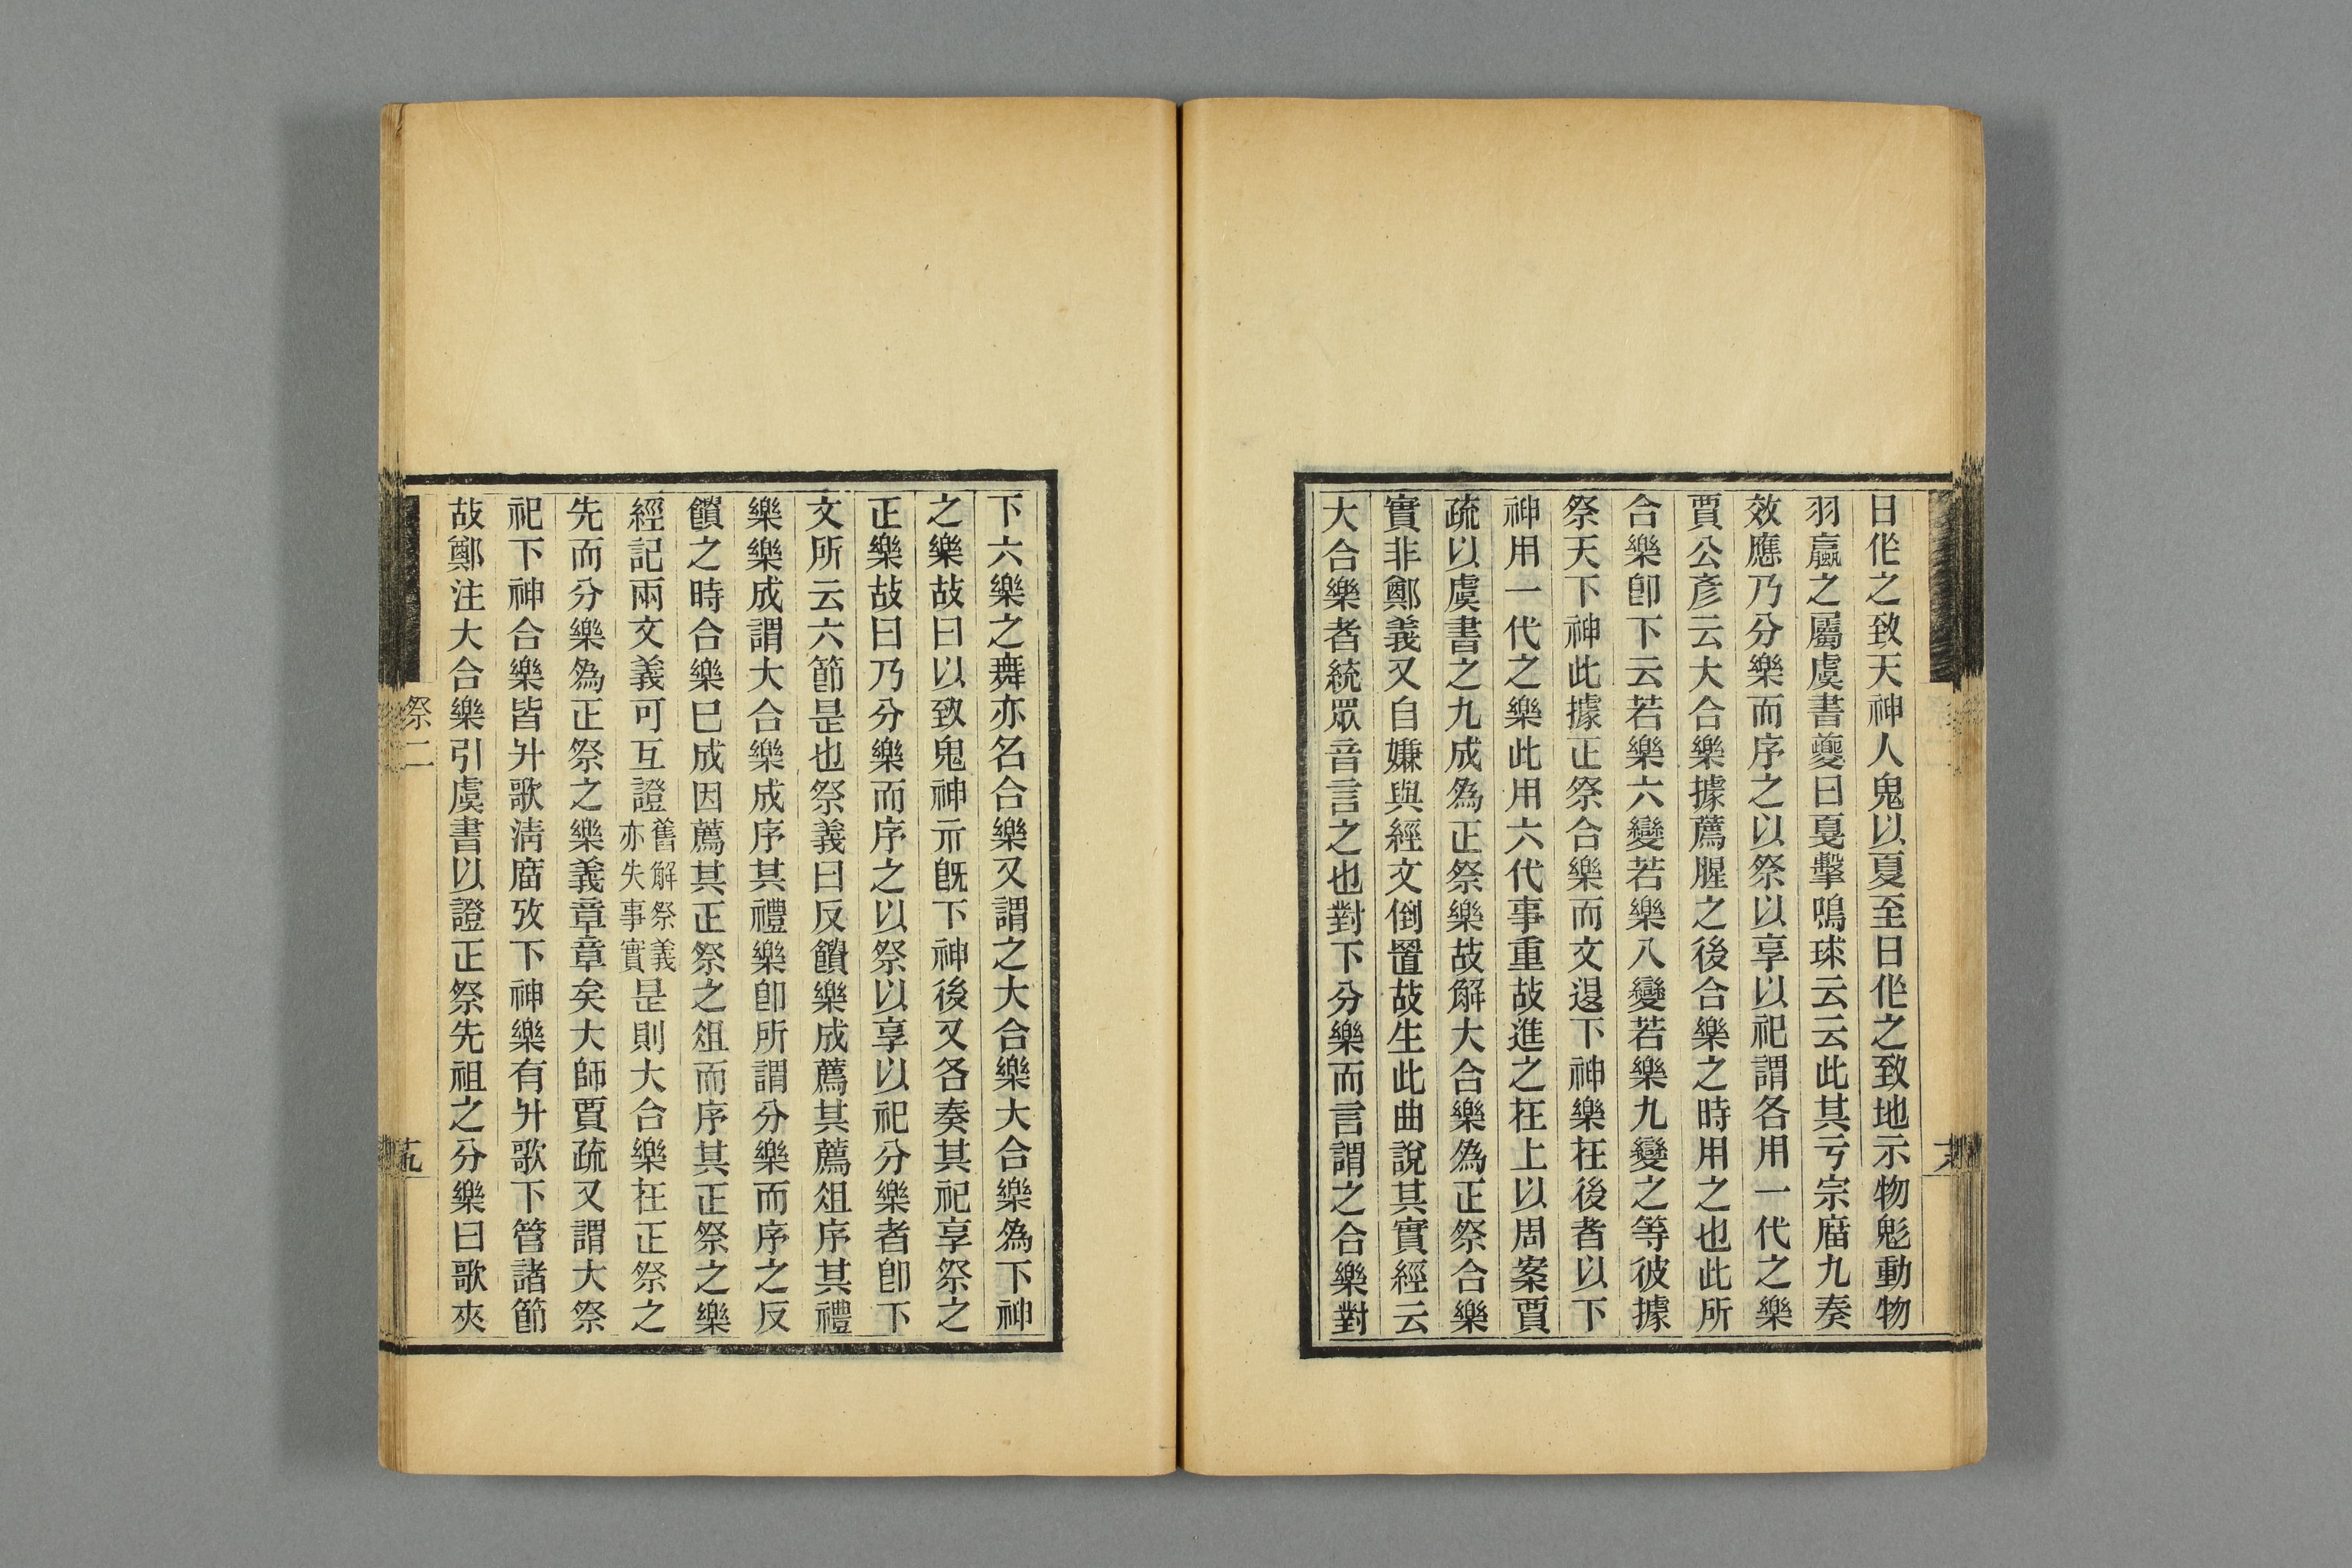 日㐲之致天神人鬼以夏至日㐲之致地示物鬽動物
羽臝之屬虞書夔曰戛擊鳴球云云此其亏宗庿九奏
效應乃分樂而序之以祭以享以祀謂各用一代之樂
賈公彥云大合樂據薦腥之後合樂之時用之也此所
合樂卽下云若樂六變若樂八變若樂九變之等彼據
祭天下神此據正祭合樂而文退下神樂在後者以下
神用一代之樂此用六代事重故進之在上以周案賈
疏以虞書之九成爲正祭樂故解大合樂爲正祭合樂
實非鄭義又自嫌與經文倒置故生此曲說其實經云
大合樂者統眾音言之也對下分樂而言謂之合樂對
下六樂之舞亦名合樂又謂之大合樂大合樂爲下神
之樂故曰以致鬼神示旣下神後又各奏其祀享祭之
正樂故曰乃分樂而序之以祭以享以祀分樂者卽下
文所云六節是也祭義曰反饋樂成薦其薦俎序其禮
樂樂成謂大合樂成序其禮樂卽所謂分樂而序之反
饋之時合樂已成因薦其正祭之俎而序其正祭之樂
經記兩文義可互證舊解祭義亦失事實是則大合樂在正祭之
先而分樂爲正祭之樂義章章矣大師賈疏又謂大祭
祀下神合樂皆升歌淸庿攷下神樂有升歌下管諸節
故鄭注大合樂引虞書以證正祭先祖之分樂曰歌夾
祭二
十九